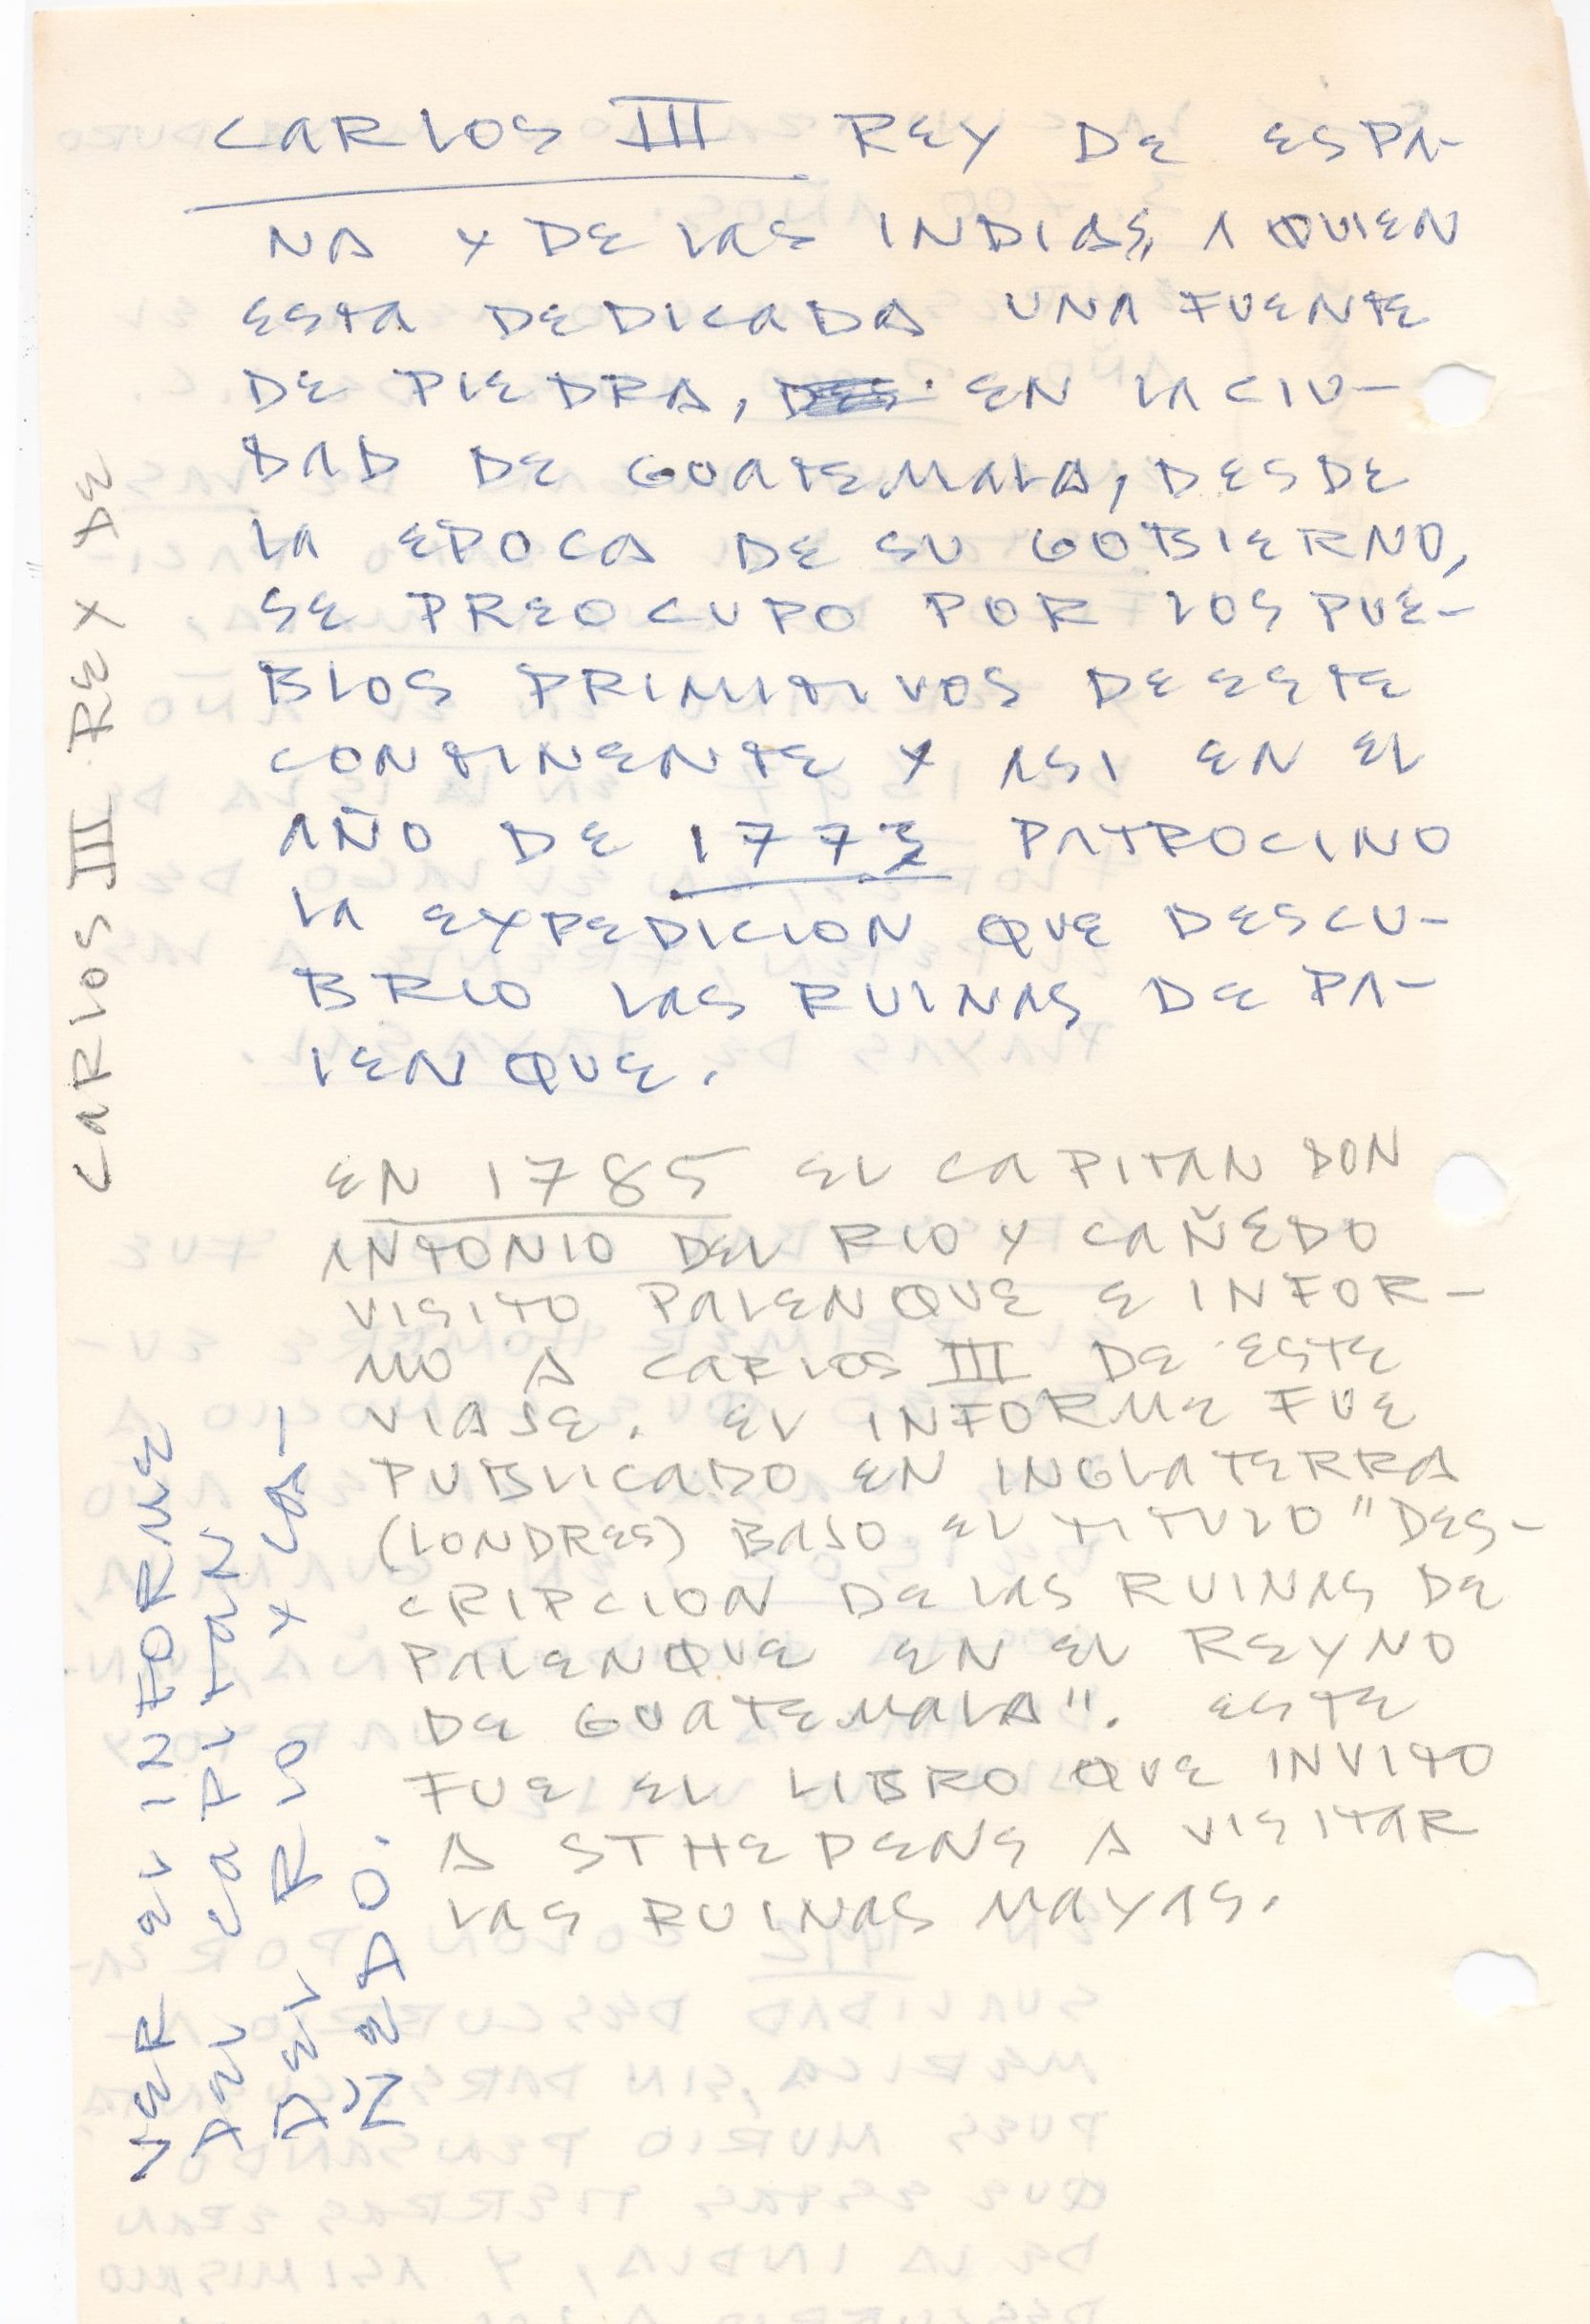 CARLOS III REY DE ESPA-
NA Y DE LAS INDIAS, A QUIEN
ESTA DEDICADA UNA FUENTE
DE PIEDRA, EN LA CIU-
DAD DE GUATEMALA, DESDE
LA EPOCA DE SU GOBIERNO,
SE PREOCUPO POR LOS PUE-
BLOS PRIMITIVOS DE ESTE
CONTINENTE Y ASI EN EL
AÑO DE 1773 PATROCINO
LA EXPEDICION QUE DESCU-
BRIO LAS RUINAS DE PA-
LENQUE.
EN 1785 EL CAPITAN DON
ANTONIO DEL RIO Y CAÑEDO
VISITO PALENQUE E INFOR-
MO A CARLOS III DE ESTE
VIAJE. EL INFORME FUE
PUBLICADO EN INGLATERRA
(LONDRES) BAJO EL TITULO "DES-
CRIPCION DE LAS RUINAS DE
PALENQUE EN EL REYNO
DE GUATEMALA". ESTE
FUE EL LIBRO QUE INVITO
A STHEPENS A VISITAR
LAS RUINAS MAYAS.
CARLOS III REX DE
VER EL INFORME
DEL CAPITAN
DEL RIO Y CA-
ÑEDO.